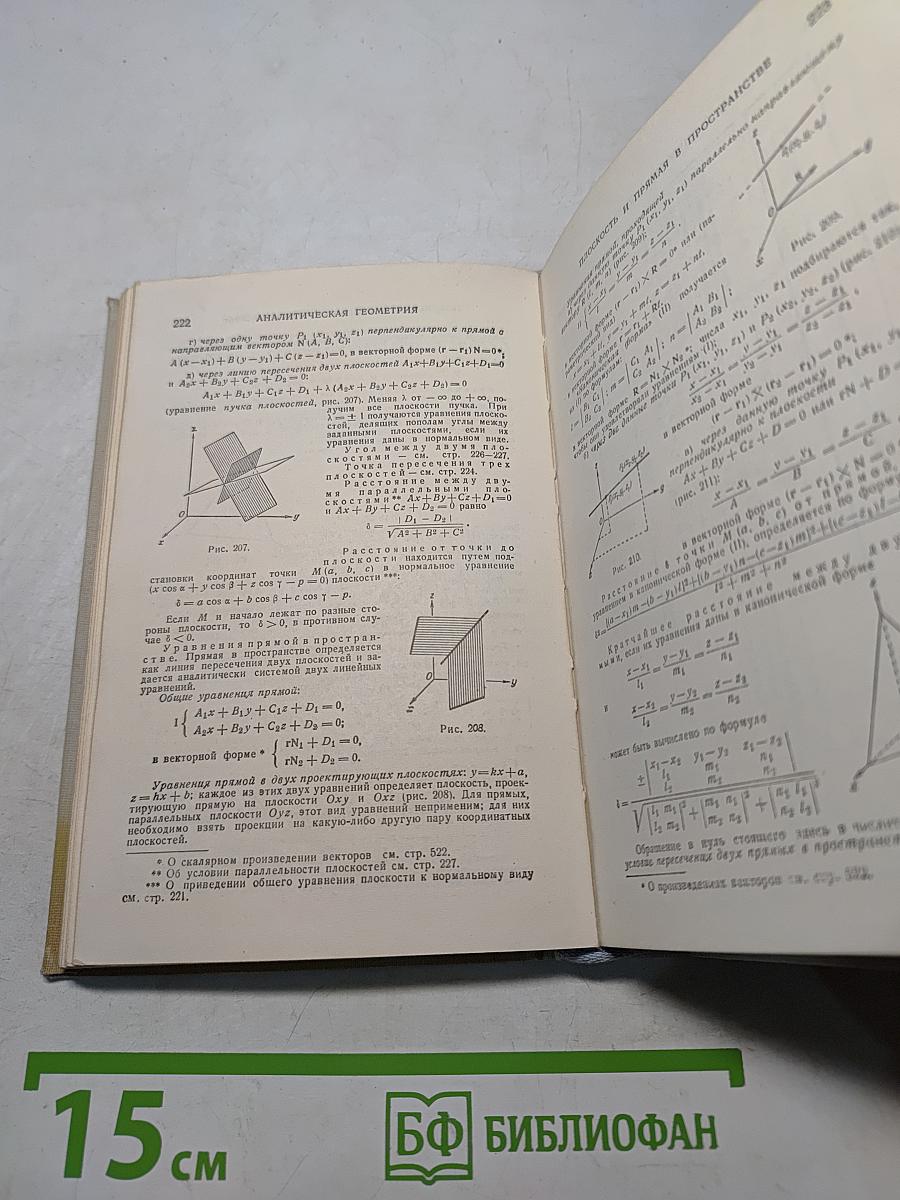 222
АНАЛИТИЧЕСКАЯ ГЕОМЕТРИЯ
г) через одну точку P₁ (x₁, y₁, z₁) перпендикулярно к прямой с
направляющим вектором N (A, B, C):
A (x — x₁) + B (y — y₁) + C (z — z₁) = 0, в векторной форме (r — r₁) N = 0*;
д) через линию пересечения двух плоскостей A₁x + B₁y + C₁z + D₁ = 0
и A₂x + B₂y + C₂z + D₂ = 0:
A₁x + B₁y + C₁z + D₁ + λ (A₂x + B₂y + C₂z + D₂) = 0
(уравнение пучка плоскостей, рис. 207). Меняя λ от — ∞ до + ∞, по-
лучим все плоскости пучка. При
λ = ± 1 получаются уравнения плоско-
стей, делящих пополам углы между
заданными плоскостями, если их
уравнения даны в нормальном виде.
Угол между двумя пло-
скостями — см. стр. 226—227.
Точка пересечения трех
плоскостей — см. стр. 224.
Расстояние между дву-
мя параллельными пло-
скостями ** Ax + By + Cz + D₁ = 0
и Ax + By + Cz + D₂ = 0 равно
δ = | D₁ — D₂ | / √(A² + B² + C²) .
z
O
y
x
Рис. 207.
Расстояние от точки до
плоскости находится путем под-
становки координат точки M (a, b, c) в нормальное уравнение
(x cos α + y cos β + z cos γ — p = 0) плоскости ***:
δ = a cos α + b cos β + c cos γ — p.
Если M и начало лежат по разные сто-
роны плоскости, то δ > 0, в противном слу-
чае δ < 0.
Уравнения прямой в простран-
стве. Прямая в пространстве определяется
как линия пересечения двух плоскостей и за-
дается аналитически системой двух линейных
уравнений.
Общие уравнения прямой:
I { A₁x + B₁y + C₁z + D₁ = 0,
A₂x + B₂y + C₂z + D₂ = 0;
в векторной форме * { rN₁ + D₁ = 0,
rN₂ + D₂ = 0.
z
O
y
x
Рис. 208.
Уравнения прямой в двух проектирующих плоскостях: y = kx + a,
z = hx + b; каждое из этих двух уравнений определяет плоскость, проек-
тирующую прямую на плоскости Oxy и Oxz (рис. 208). Для прямых,
параллельных плоскости Oyz, этот вид уравнений неприменим; для них
необходимо взять проекции на какую-либо другую пару координатных
плоскостей.
* О скалярном произведении векторов см. стр. 522.
** Об условии параллельности плоскостей см. стр. 227.
*** О приведении общего уравнения плоскости к нормальному виду
см. стр. 221.
223
ПЛОСКОСТЬ И ПРЯМАЯ В ПРОСТРАНСТВЕ
Уравнения прямой, проходящей
через данную точку P₁ (x₁, y₁, z₁) параллельно направляющему
R (l, m, n) (рис. 209):
Рис. 209.
в векторной форме (r — r₁) × R = 0* или (па-
получается
подбираются так,
и P₂ (x₂, y₂, z₂) (рис. 210)
в векторной форме
(r — r₁) × (r₂ — r₁) = 0 *;
в) через данную точку P₁ (x₁, y₁,
перпендикулярно к плоскости
Ax + By + Cz + D = 0 или rN + D =
(рис. 211):
(x — x₁) / A = (y — y₁) / B = (z — z₁) / C
Рис. 210.
в векторной форме (r — r₁) × N = 0
Расстояние точки M (a, b, c) от прямой,
уравнением в канонической форме (II), определяется по форму
Кратчайшее расстояние между дву
мыми, если их уравнения даны в канонической форме
(x — x₁) / l₁ = (y — y₁) / m₁ = (z — z₁) / n₁
и
(x — x₂) / l₂ = (y — y₂) / m₂ = (z — z₂) / n₂
может быть вычислено по формуле
Обращение в нуль стоящего здесь в числи
условие пересечения двух прямых в пространст
* О произведениях векторов см. стр.
15 см
БФ БИБЛИОФАН